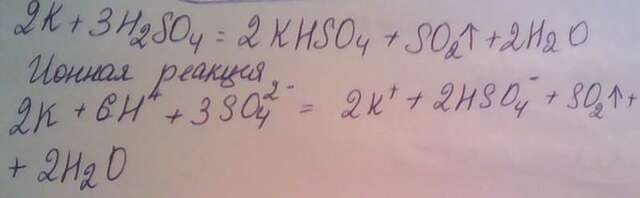 2K + 3H₂SO₄ = 2KHSO₄ + SO₂↑ + 2H₂O
Ионная реакция
2K + 6H⁺ + 3SO₄²⁻ = 2K⁺ + 2HSO₄⁻ + SO₂↑ +
+ 2H₂O